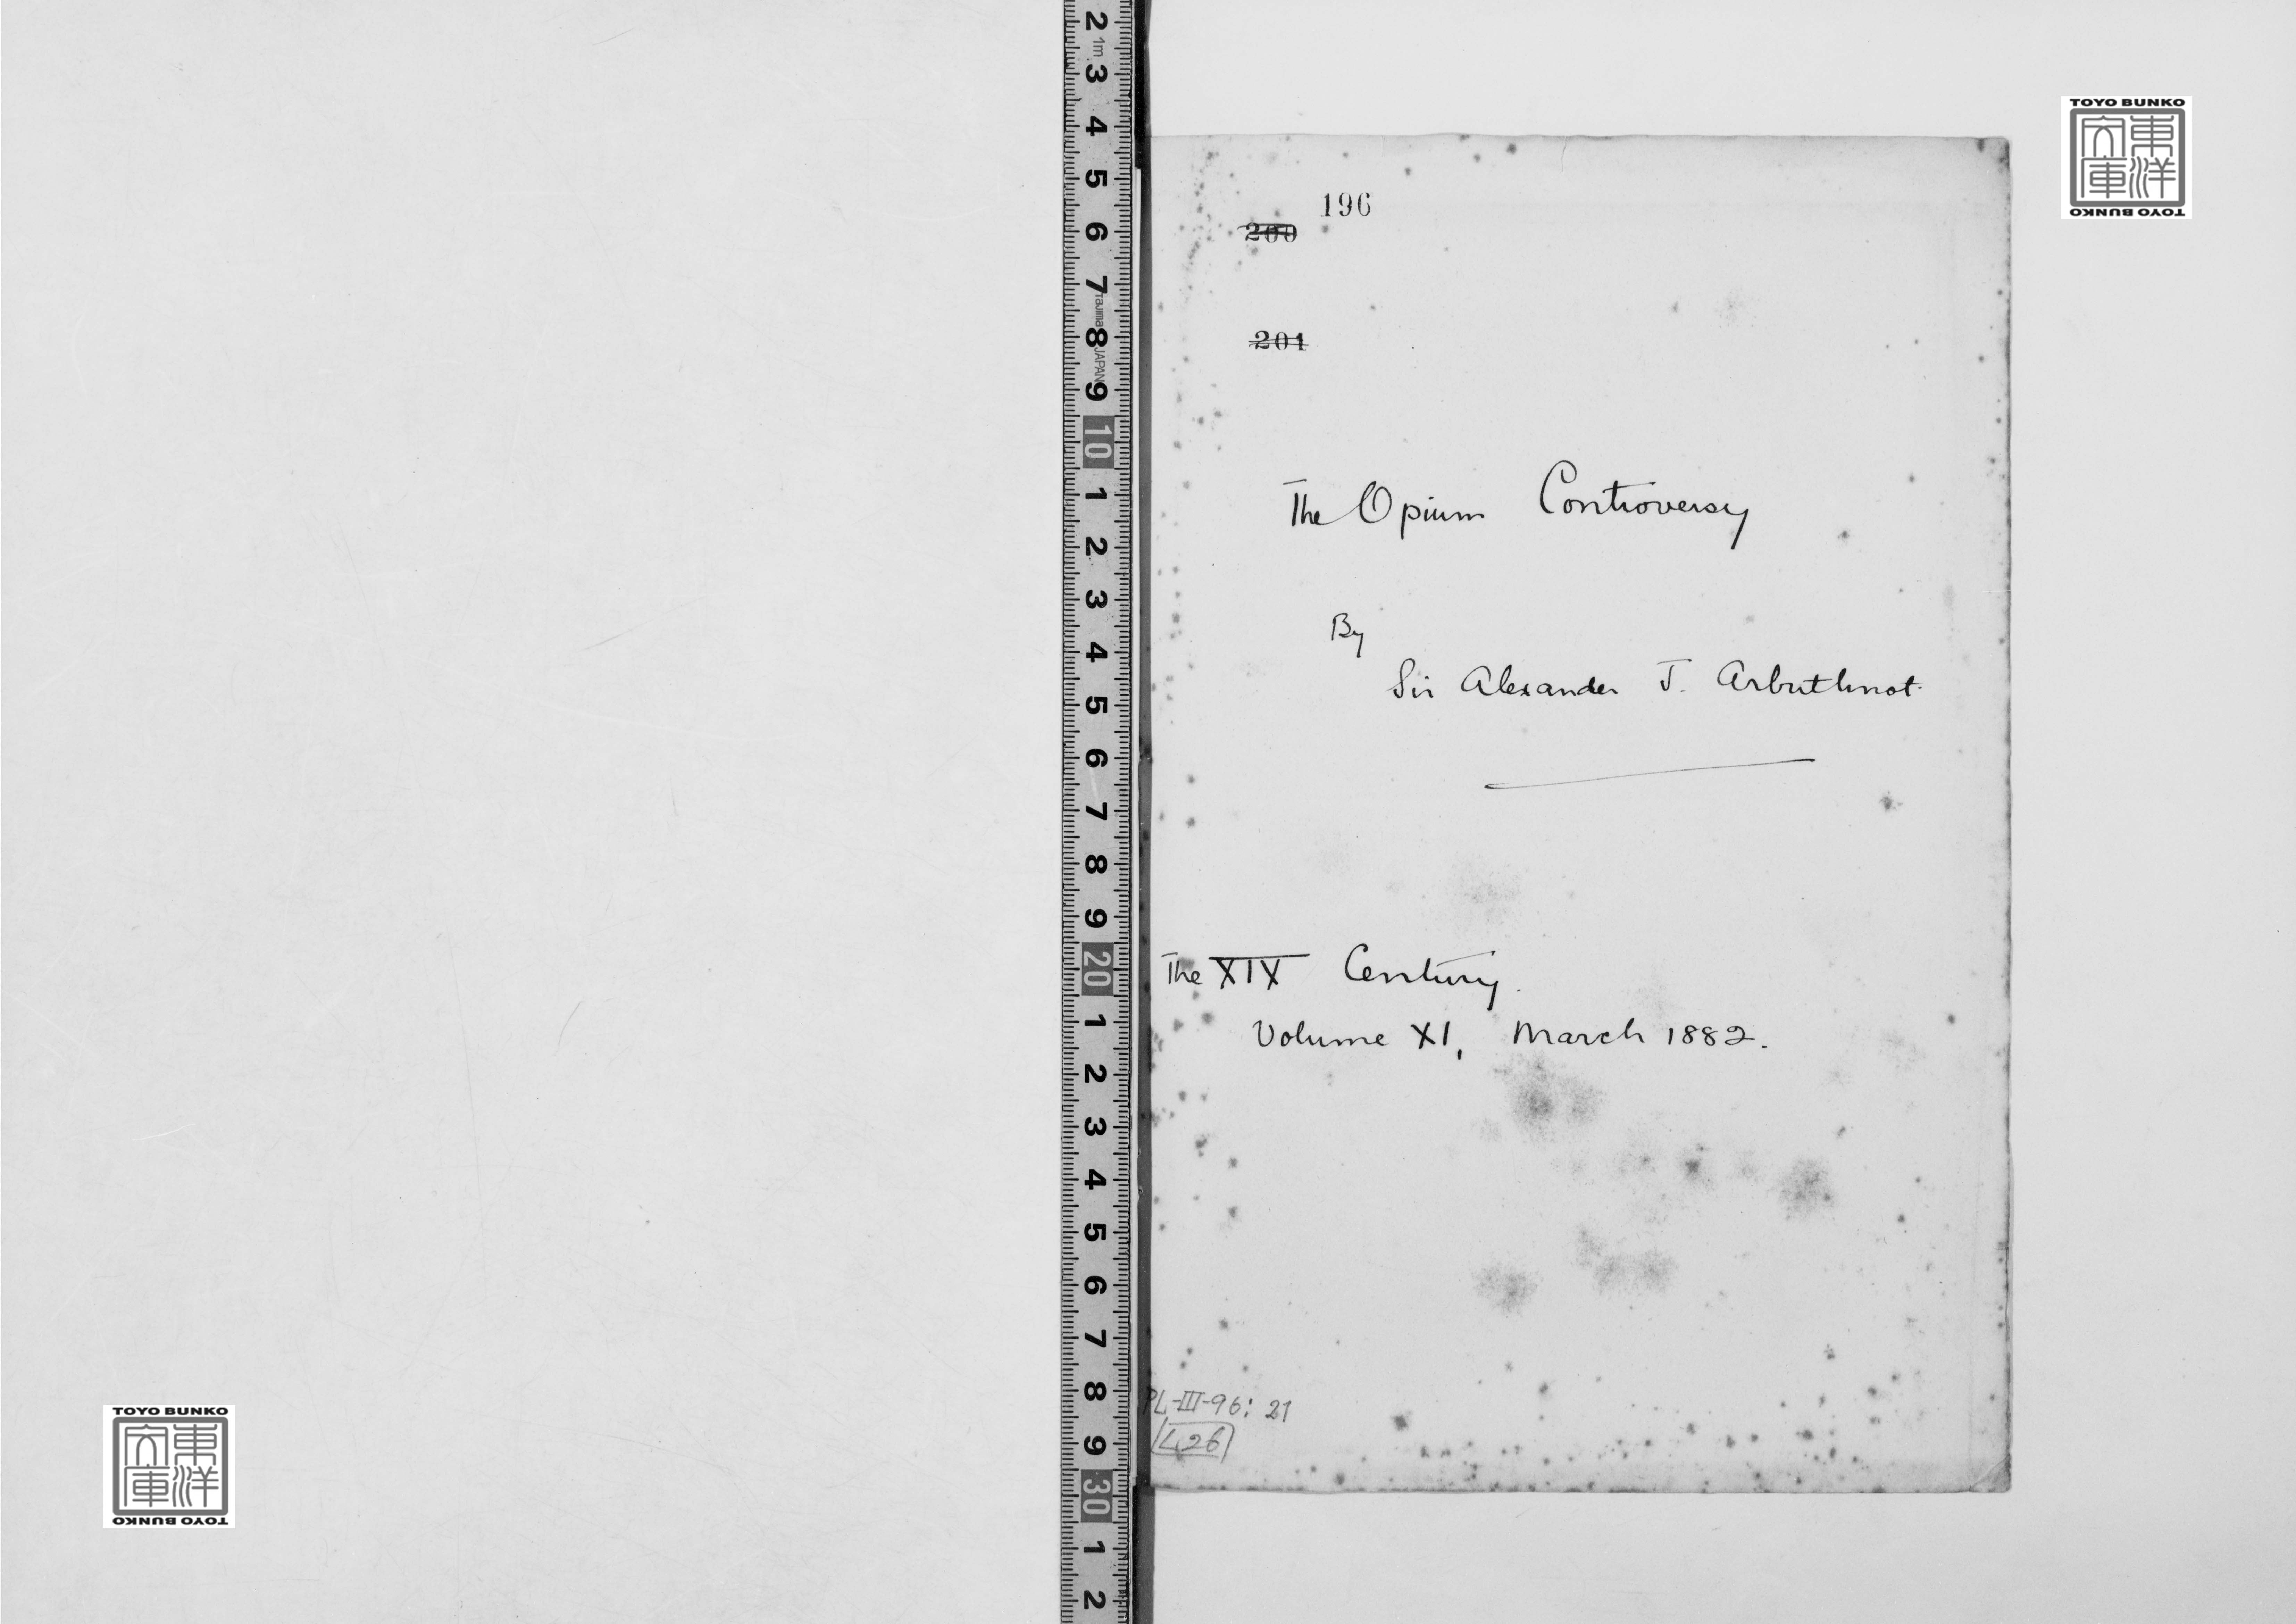 TOYO BUNKO
東洋文庫
TOYO BUNKO
196
200
201
The Opium Controversy
By
Sir Alexander J. Arbuthnot.
The XIX Century.
Volume XI, March 1882.
PL-III-96: 21
L26
2 1m 3 4 5 6 7 Tajima 8 JAPAN 9 10 1 2 3 4 5 6 7 8 9 20 1 2 3 4 5 6 7 8 9 30 1 2
TOYO BUNKO
東洋文庫
TOYO BUNKO